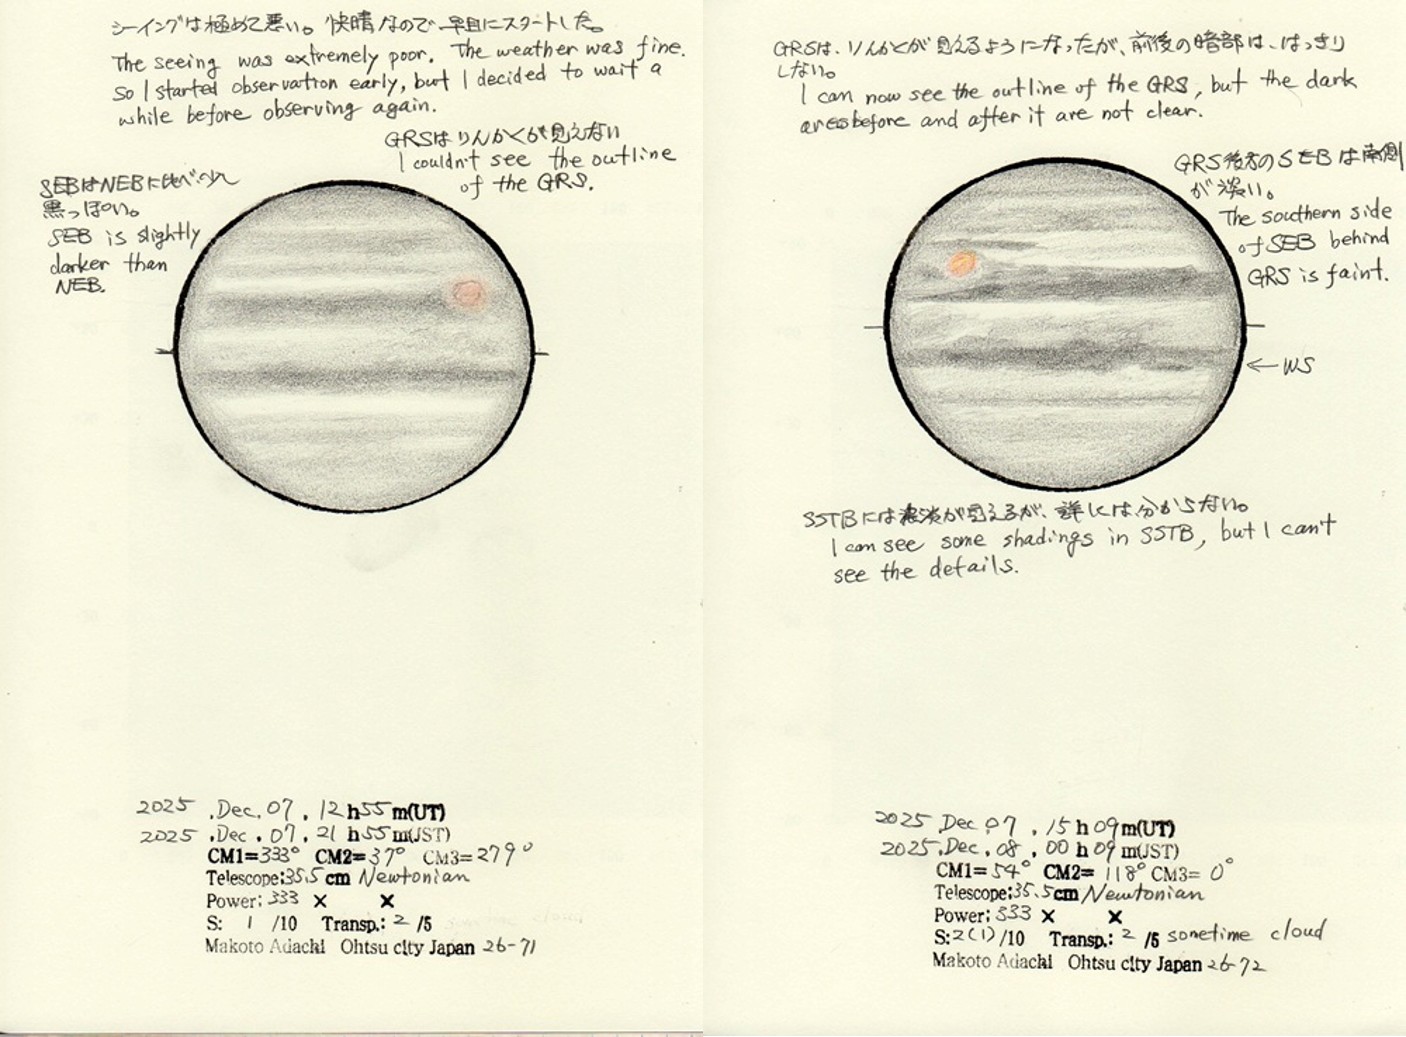 シーイングは極めて悪い。快晴なので早目にスタートした。
The seeing was extremely poor. The weather was fine.
So I started observation early, but I decided to wait a
while before observing again.
GRSはりんかくが見えない
I couldn't see the outline
of the GRS.
SEBはNEBに比べ少し
黒っぽい。
SEB is slightly
darker than
NEB.
2025 .Dec.07, 12 h55 m(UT)
2025 .Dec.07, 21 h55 m(JST)
CM1=333° CM2=37° CM3=279°
Telescope:35.5 cm Newtonian
Power: 333 × ×
S: 1 /10 Transp.: 2 /5
Makoto Adachi Ohtsu city Japan 26-71
GRSは、りんかくが見えるようになったが、前後の暗部は、はっきり
しない。
I can now see the outline of the GRS, but the dark
areas before and after it are not clear.
GRS後方のSEBは南側
が淡い。
The southern side
of SEB behind
GRS is faint.
← WS
SSTBには濃淡が見えるが、詳しくは分からない。
I can see some shadings in SSTB, but I can't
see the details.
2025 Dec.07, 15 h 09 m(UT)
2025.Dec.08, 00 h 09 m(JST)
CM1= 54° CM2= 118° CM3= 0°
Telescope:35.5cm Newtonian
Power: 333 × ×
S:2(1)/10 Transp.: 2 /5 sometime cloud
Makoto Adachi Ohtsu city Japan 26-72